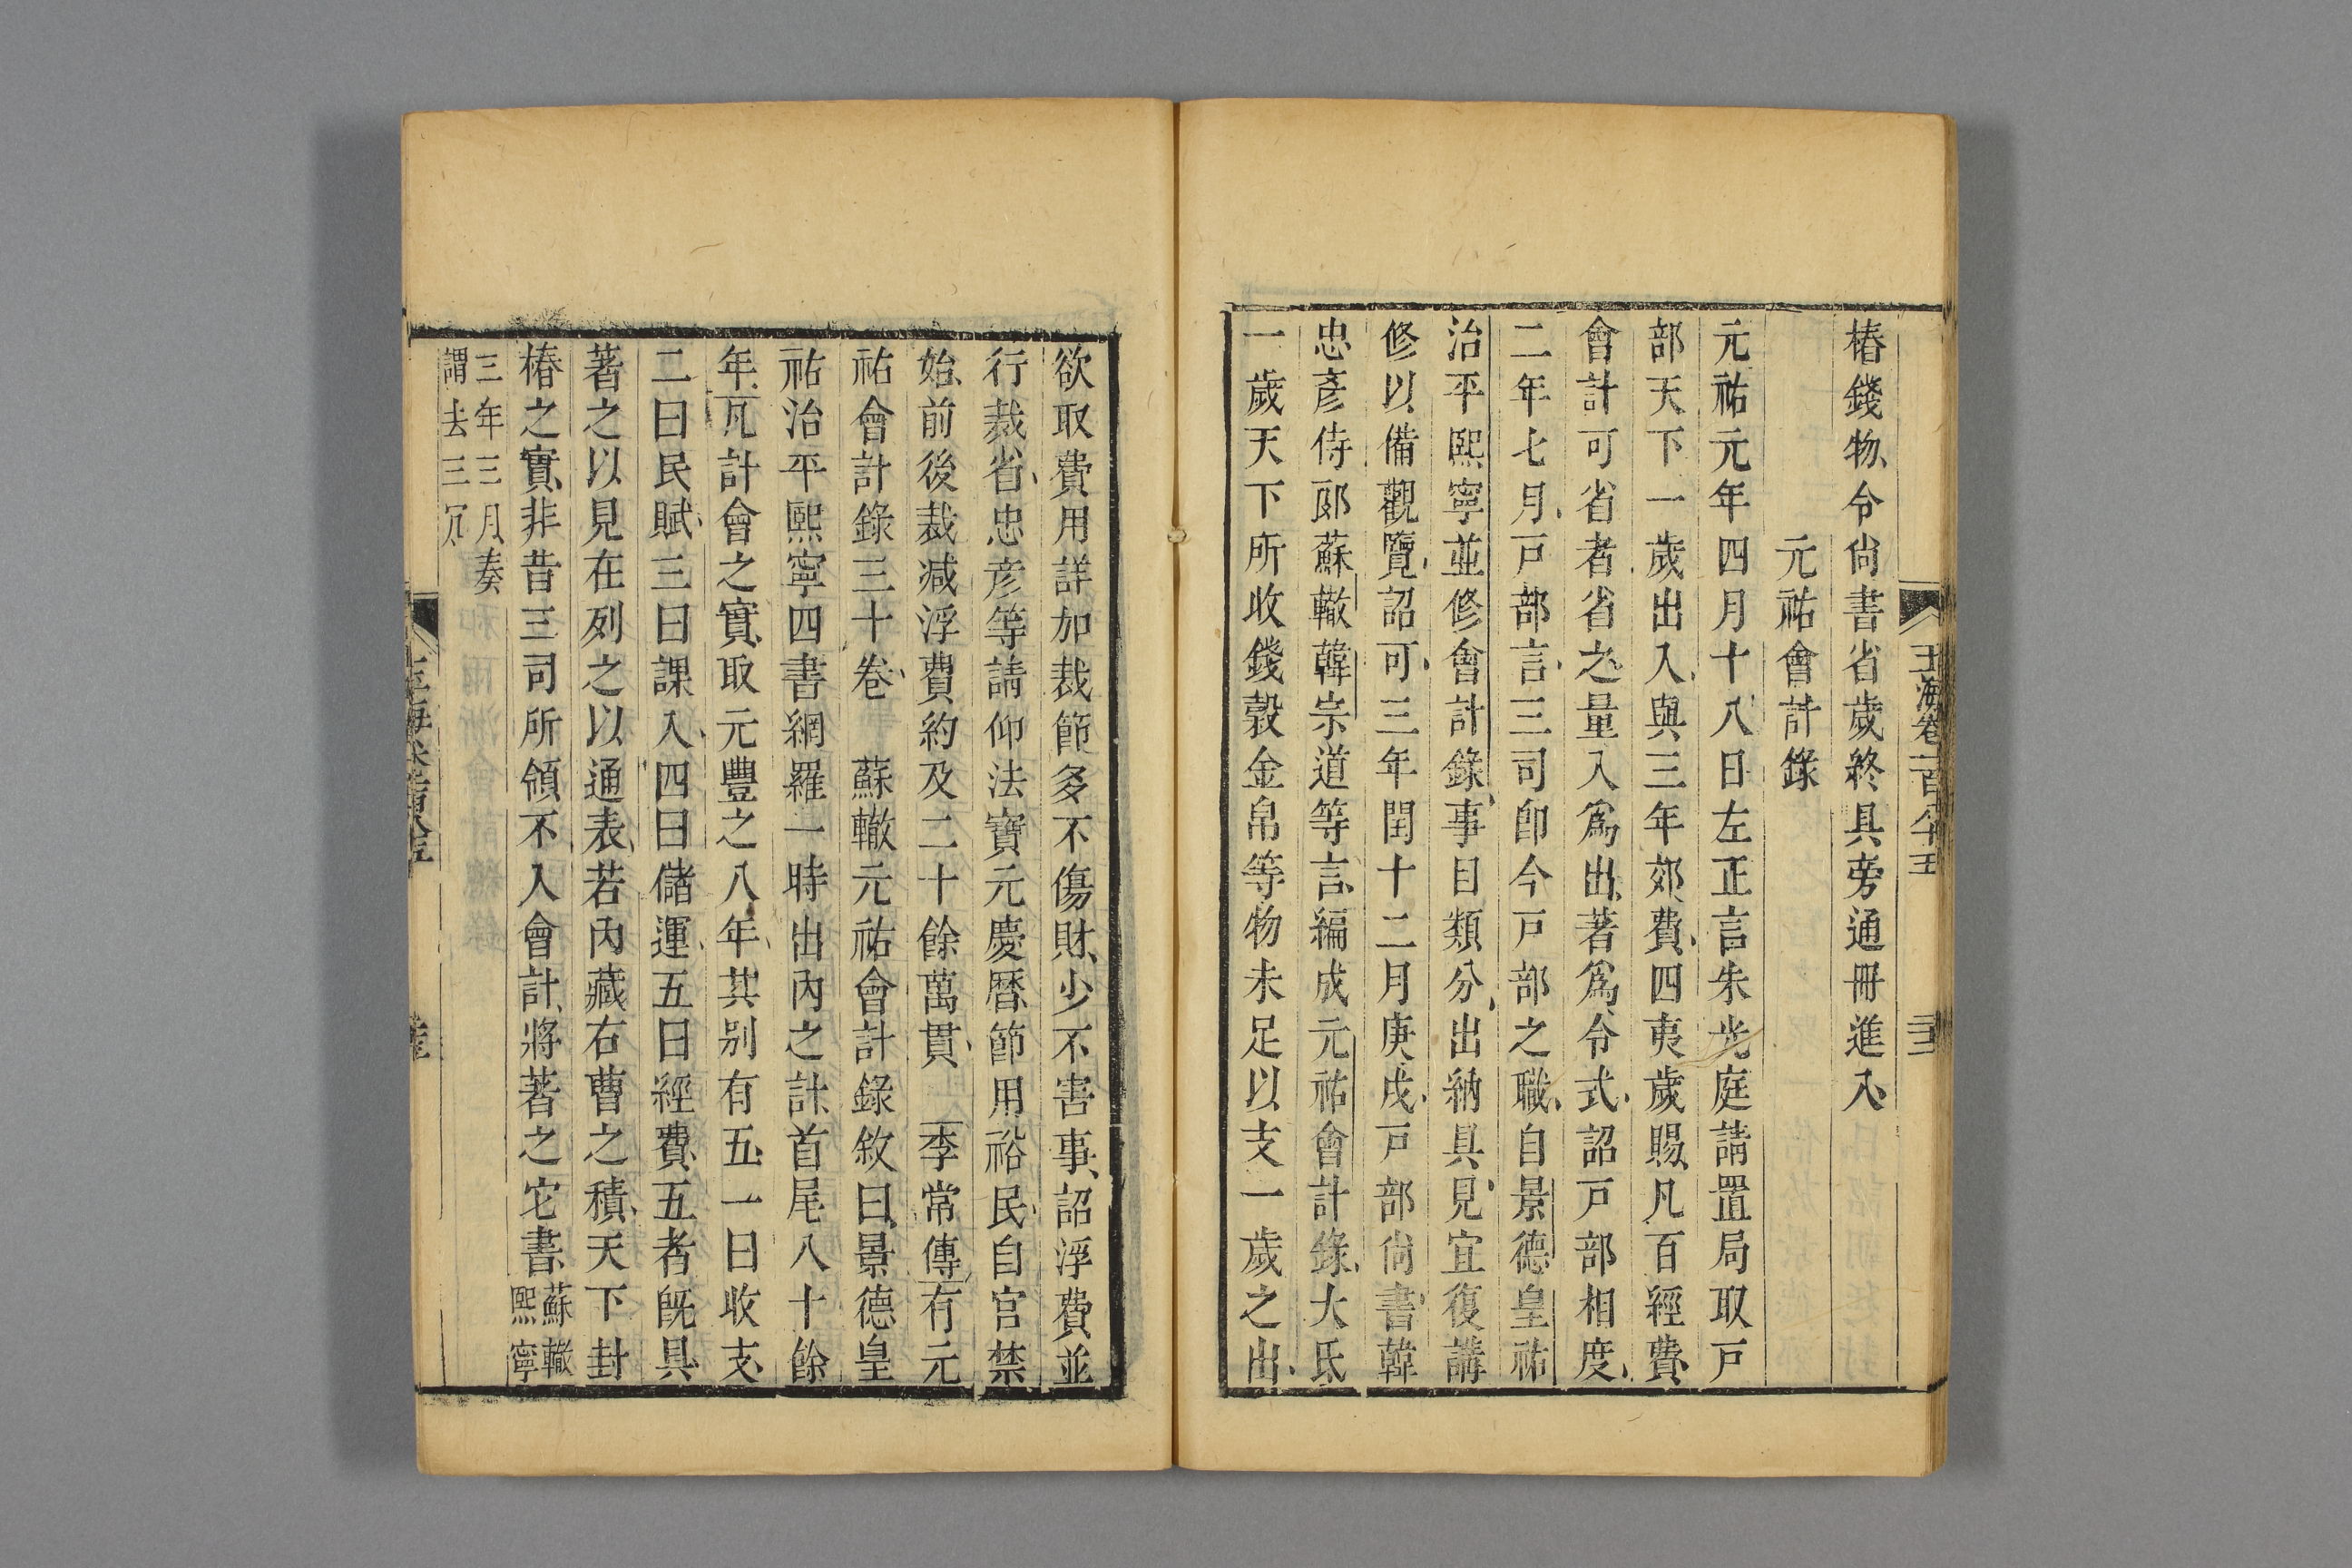 玉海卷一百八十五
椿錢物令尚書省歲終具旁通冊進入
元祐會計錄
元祐元年四月十八日左正言朱光庭請置局取戸
部天下一歲出入與三年郊費四夷歲賜凡百經費
會計可省者省之量入爲出著爲令式詔戸部相度
二年七月戸部言三司卽今戸部之職自景德皇祐
治平熙寧並修會計錄事目類分出納具見宜復講
修以備觀覽詔可三年閏十二月庚戌戸部尚書韓
忠彥侍郎蘇轍韓宗道等言編成元祐會計錄大氐
一歲天下所收錢穀金帛等物未足以支一歲之出
欲取費用詳加裁節多不傷財少不害事詔浮費並
行裁省忠彥等請仰法寶元慶曆節用裕民自宮禁
始前後裁減浮費約及二十餘萬貫 李常傳有元
祐會計錄三十卷 蘇轍元祐會計錄敘曰景德皇
祐治平熙寧四書網羅一時出內之計首尾八十餘
年凡計會之實取元豐之八年其別有五一曰收支
二曰民賦三曰課入四曰儲運五曰經費五者旣具
著之以見在列之以通表若內藏右曹之積天下封
椿之實非昔三司所領不入會計將著之它書蘇轍
熙寧
三年三月奏
謂去三冗